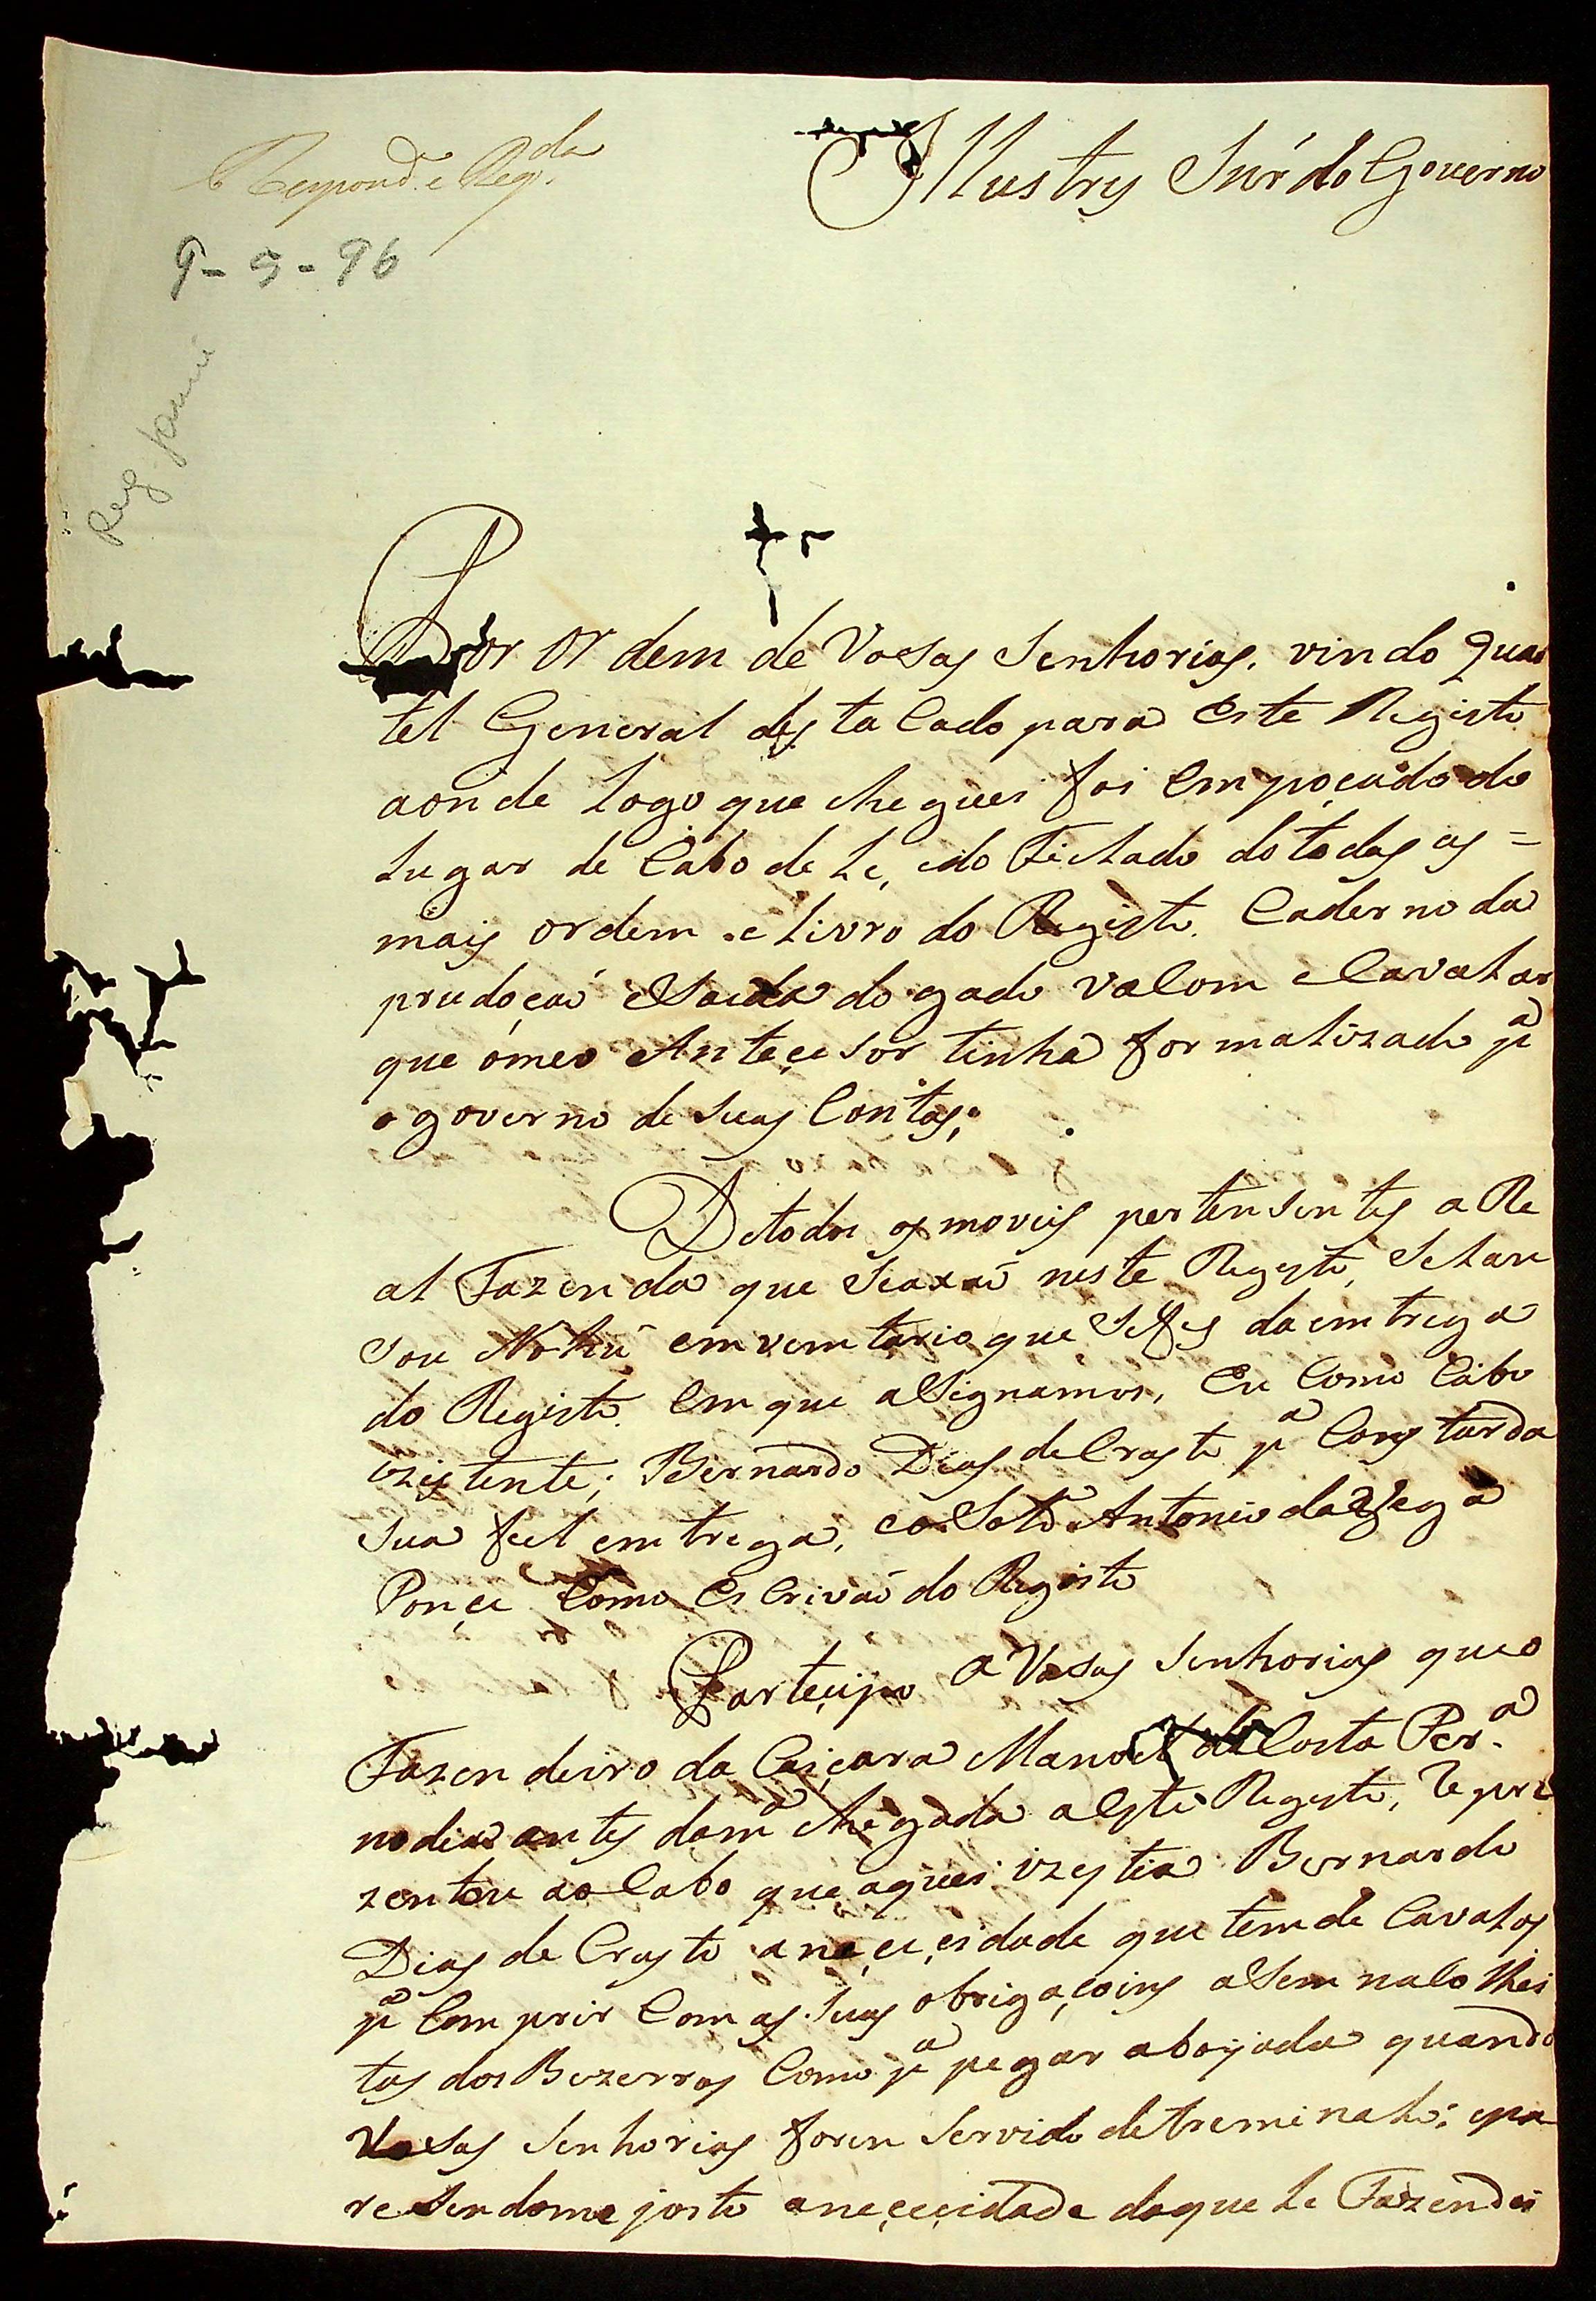 Respond.e Reg.da
Illustrs Snr do Governo
9-5-96
Reg. Jauru
Por Ordem de Vosas Senhorias. vin do Quar
tel General des ta Cado para este Registo
aonde Logo que cheguei foi Empoçado do
Lugar de Cabo de Le, do Fichado do todas as =
mais ordem .e Livro do Registo. Caderno da
prudoçaõ eSaida do gado valom e Cavalar
que ómeo Anteçesor tinha formalizado pª
o governo de suas Contas;
De todos os moveis pertensentes a Re
al Fazenda que Seaxaõ neste Registo, Se Lan
sou No hũ emventario que Se fes da emtrega
do Registo. Em que aSignamos, Eu Como Cabo
izistente; Bernardo Dias de Crasto pª Constar da
sua fiel emtrega, eo Soldº Antonio da Veiga
Ponçe Como Escrivaõ do Registo
Parteçipo a Vosas Senhorias que o
Fazendeiro da Caiçara Manoel da Costa Per.ª
no dia antes da mª chegada a este Registo, Repre
zentou ao Cabo que aquei izestia Bernardo
Dias de Crasto a neçeçidade que tem de Cavalos
pª Comprir Com as Suas obrigaçoins aSem na Colhei
tas dos Bezerros Como pª pegar a boyada quando
Vosas Senhorias foren Servido detreminalo; epa
resendome josto a neçeçidade daque Le Fazendei